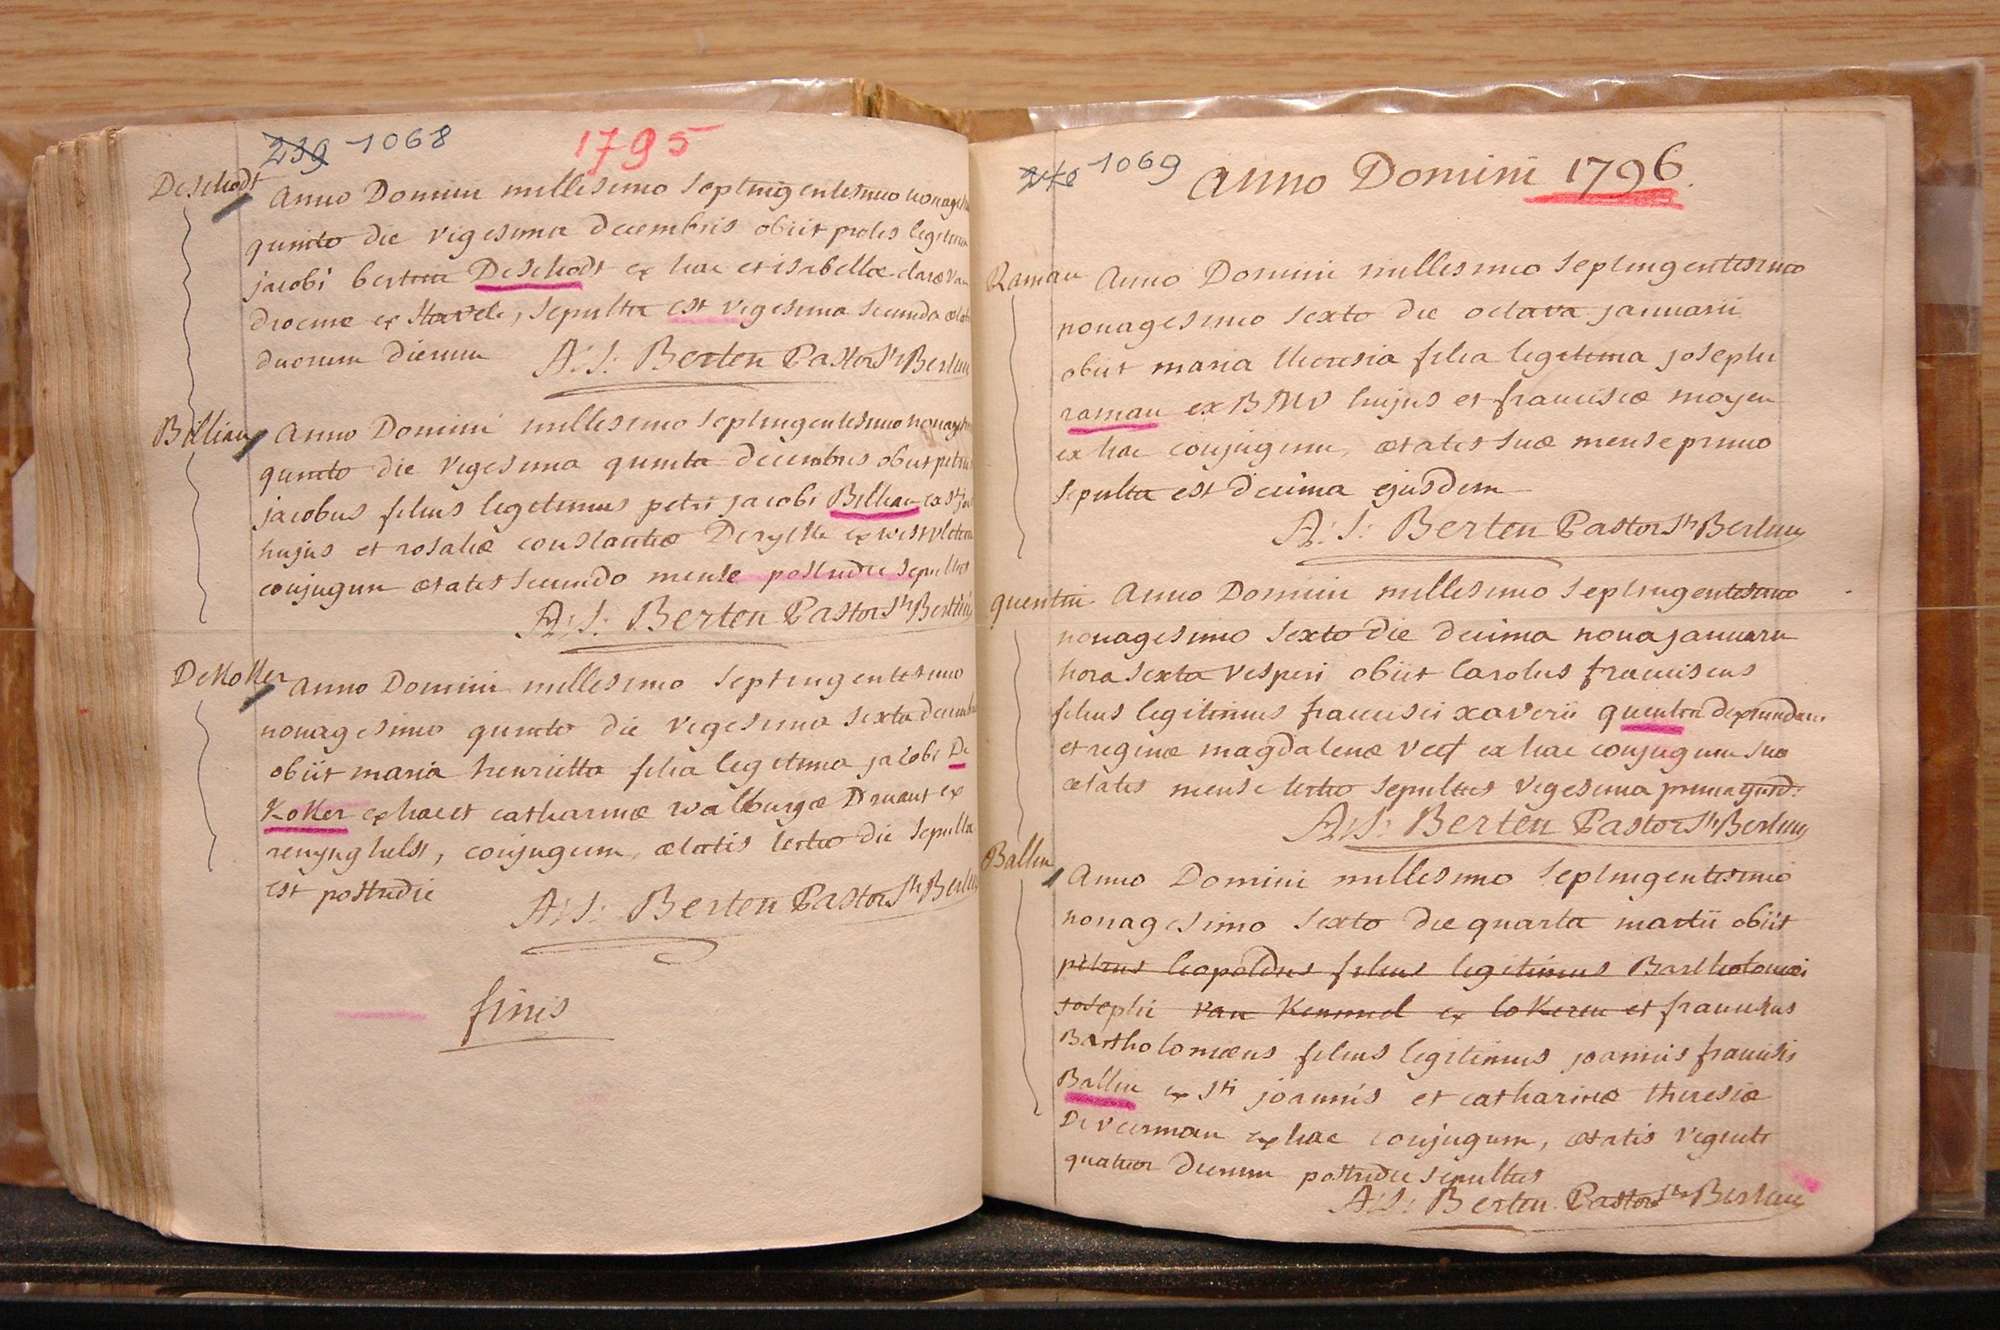 239 1068 1795
Deschodt
Anno Domini millesimo septingentesimo nonages
quinto die vigesima decembris obiit proles legitima
jacobi bertini Deschodt ex hac et isabellæ claræ van
drocme ex Stavele, sepulta est vigesima secunda ætat
duorum dierum A: J: Berten Pastor Sti Bertini
Billiau
Anno Domini millesimo septingentesimo nonages
quinto die vigesima quinta decembris obiit petrus
jacobus filius legitimus petri jacobi Billiau ex Sti
hujus et rosaliæ constantiæ Derycke ex westvleteren
conjugum ætatis secundo mense postridie sepultus
A: J: Berten Pastor Sti Bertini
DeKoKer
Anno Domini millesimo septingentesimo
nonagesimo quinto die vigesima sexta decembris
obiit maria henrietta filia legitima jacobi De
KoKer ex hac et catharinæ walburgæ Druant ex
renynghelst, conjugum, ætatis tertio die sepulta
est postridie
A: J: Berten Pastor Sti Bertini
finis
240 1069
Anno Domini 1796.
Ramau
Anno Domini millesimo septingentesimo
nonagesimo sexto die octava januarii
obiit maria theresia filia legitima josephi
ramau ex BMV hujus et franciscæ moyen
ex hac conjugum, ætatis suæ mense primo
sepulta est decima ejusdem
A: J: Berten Pastor Sti Bertini
quentin
Anno Domini millesimo septingentesimo
nonagesimo sexto die decima nona januarii
hora sexta vesperi obiit Carolus franciscus
filius legitimus francisci xaverii quentin
et reginæ magdalenæ ex hac conjugum suo
ætatis mense tertio sepultus vigesima prima ejusd:
A: J: Berten Pastor Sti Bertini
Ballin
Anno Domini millesimo septingentesimo
nonagesimo sexto die quarta martii obiit
petrus leopoldus filius legitimus Bartholomæi
josephi van Kemmel ex loKeren et franciscus
Bartholomæus filius legitimus joannis francisci
Ballin ex Sti joannis et catharinæ theresiæ
Deveerman ex hac conjugum, ætatis viginti
quatuor dierum postridie sepultus
A: J: Berten Pastor Sti Bertini